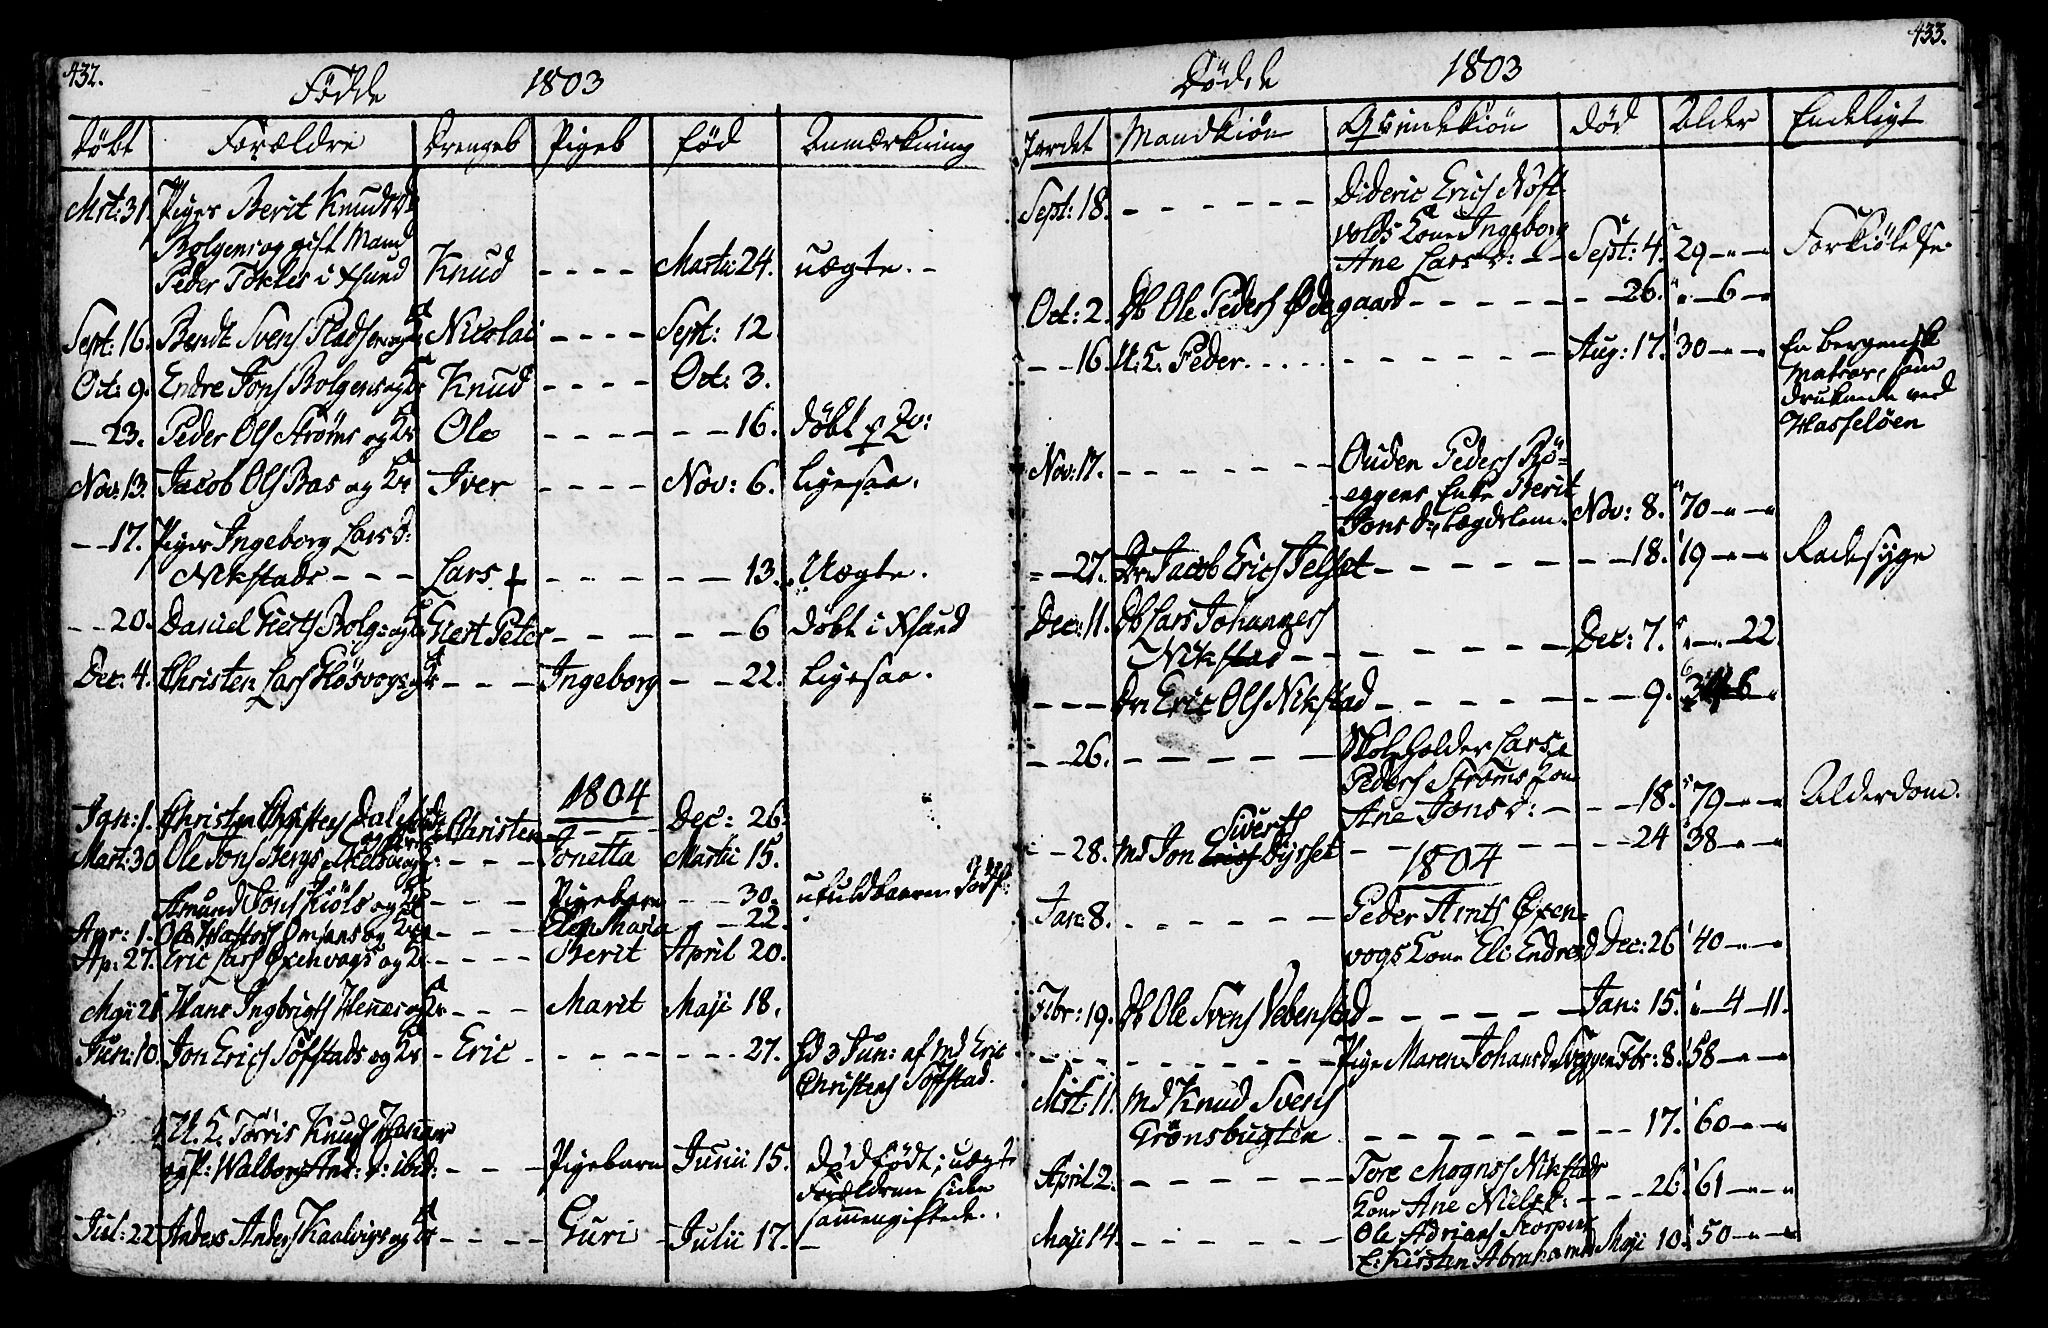 432.
Födde 1803
Döbt Forældre Drengeb Pigeb föd Anmærkning
Mrt: 31. Piges Berit Knudsd:
Bolgens og gift Mand
Peder Tokles i Xsund Knud - - - - Martii 24. uægte. -
Sept: 16. Bendt Svens Pladsen og Kr Nicolai - - - - Sept: 12
Oct: 9. Endre Jons Bolgens og Kr Knud - - - - Oct: 3.
- 23. Peder Ols Ströms og Kr Ole - - - - - - 16. döbt
Nov: 13. Jacob Ols Bas og Kr Iver - - - - Nov: 6. ligesaa.
- - 17. Piges Ingeborg Larsd:
Nikstads - - - Lars † - - - - - - 13. Uægte.
- - 20. Daniel Gerts Bolg: og Kr Giert Peter - - - - - - 6 döbt i Xsund
Dec: 4. Christen Lars Hösvogs og Kr - - - Ingeborg - - 22. ligesaa.
1804
Jan: 1. Christen Christens Dalens Christen - - - Dec: 26.
Mart: 30 Ole Jons Bergs - - - Jonetta Martii 15.
Amund Jons Kiöls og Kr - - - Pigebarn - - 30. ufuldbaaren dödf:
Apr: 1. Ole Omsens og Kr - - - Elen Maria - 22.
Ap: 27. Eric Lars Öxenvogs og Kr - - - - Berit April 20.
Maji 21 Hans Ingbrigts Henes og Kr - - - Marit Maji 18.
Jun: 10. Jon Erics Söfstads og Kr - Eric - - - - - - 27. Hd 3 Jun: af Md Eric
Christens Söfstad.
U. K. Törris Knuds Hennes
og P: Walborg ibid: - - - Pigebarn Junii 15. dödfödt; uægte
Forældrene siden
sammengiftede.
Jul: 22 Anders Anders Kaalvigs og Kr - - - - Guri Julii 17. -
433.
Döde 1803
Jordet Mandkiön Qvindekiön död Alder Endeligt
Sept: 18. - - - - - - Dideric Erics Nöst
volds Kone Ingeborg
Ane Larsd: - - Sept: 4. 29 - " - " Forkiölelse.
Oct: 2. Db Ole Peders Ödegaard - - - - - - 26. " - 6 - "
- - 16. U. K. Peder. . . . . - - - - - - Aug: 17. 30 - " - " En bergensk
Matros, som
druknede ved
Hasselöen
Nov: 17. - - - - - - Ouden Peders Rö-
eggens Enke Berit
Jonsd:, Lægdslem. Nov: 8. 70 - " - "
- - 27. Dr. Jacob Erics Jelset - - - - - - 18. 19 - " - " Radesyge
Dec: 11. Db Lars Johannes
Nikstad - - - - - - Dec: 7. " - " - 22.
- - - Dr: Eric Ols Nikstad - - - - - - 9. 6
- - 26. - - - - - Skoleholder Lars
Peders Ströms Kone
Ane Jonsd: - - - 18. 79 - " - " Alderdom.
- - 28. Md Jon Siverts Dyrset - - - - - - 24 38 - " - "
1804
Jan: 8. - - - - - - Peder Arnts Öxen-
vogs Kone Eli Endresd Dec: 26 40 - " - "
Febr: 19. Db Ole Svens Vebenstad - - - - - Jan: 15. " - 4 - 11.
- - - - - - - Pige Maren Johansd: Seggen Febr: 8. 58 - " - "
Mrt: 11. Md Knud Svens
Grönsbugten - - - - - - 17. 60 - " - "
April 2. - - - - - - Tore Mognss Nikstads
Kone Ane Nielsd: - - - 26. 61 - " - "
Maji 14. - - - - - - Ole Adrians Skorpens
E: Kirsten Abrahamsd Maji 10. 50 - " - "